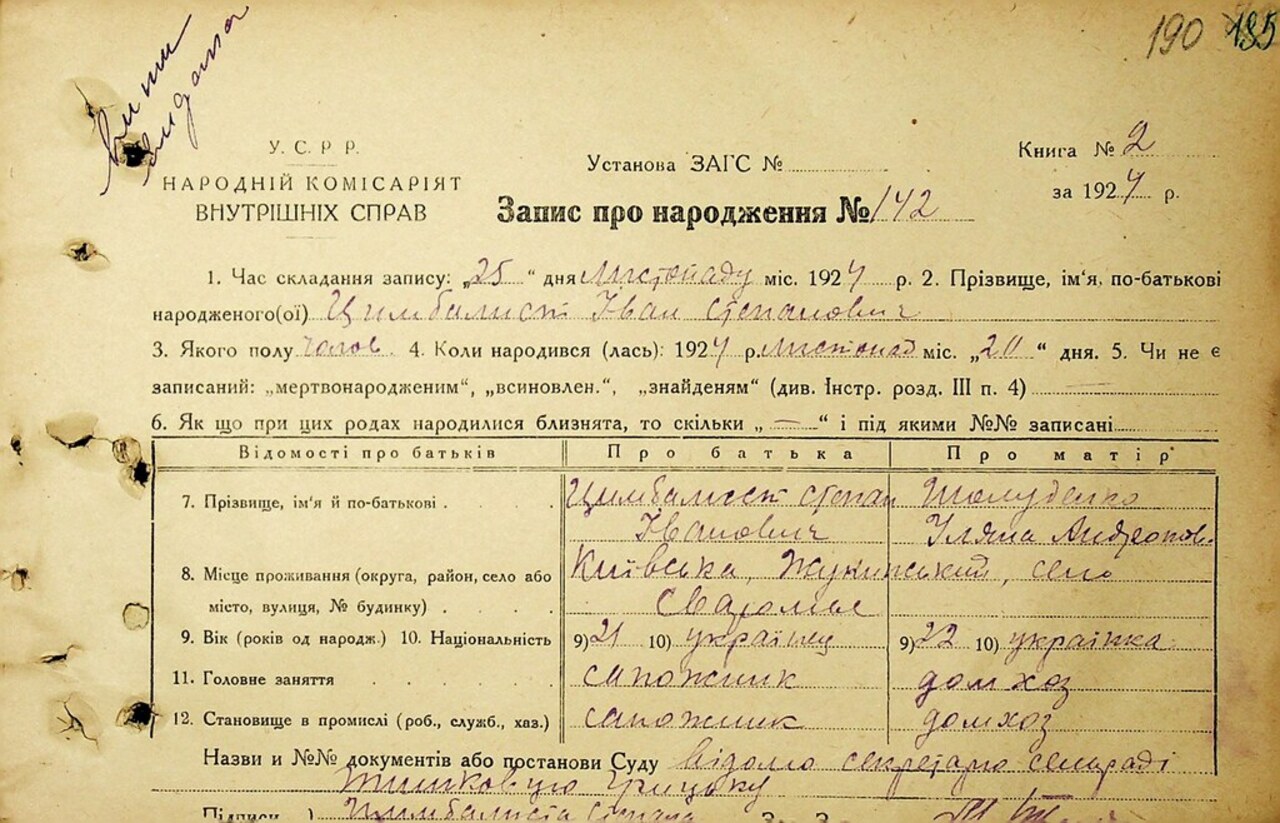 Випис видана
190 185
У. С. Р Р.
НАРОДНІЙ КОМІСАРІЯТ
ВНУТРІШНІХ СПРАВ
Установа ЗАГС №
Книга № 2
за 1927 р.
Запис про народження № 142
1. Час складання запису: „25“ дня листопаду міс. 1927 р. 2. Прізвище, ім‘я, по-батькові
народженого(ої) Цимбалист Іван Степанович
3. Якого полу чолов. 4. Коли народився (лась): 1927 р. листопад міс. „20“ дня. 5. Чи не є
записаний: „мертвонародженим“, „всиновлен.“, „знайденям“ (див. Інстр. розд. III п. 4)
6. Як що при цих родах народилися близнята, то скільки „—“ і під якими №№ записані
Відомості про батьків Про батька Про матір
7. Прізвище, ім‘я й по-батькові Цимбалист Степан Шолуденко
Іванович Уляна Андроновн
8. Місце проживання (округа, район, село або Київська, Жукинський, село
місто, вулиця, № будинку) Сваромье
9. Вік (років од народж.) 10. Національність 9) 21 10) українец 9) 22 10) українка
11. Головне заняття сапожник домхоз
12. Становище в промислі (роб., служб., хаз.) сапожник домхоз
Назви и №№ документів або постанови Суду відомо секретарю сельраді
Підписи ) Цимбалиста Степана